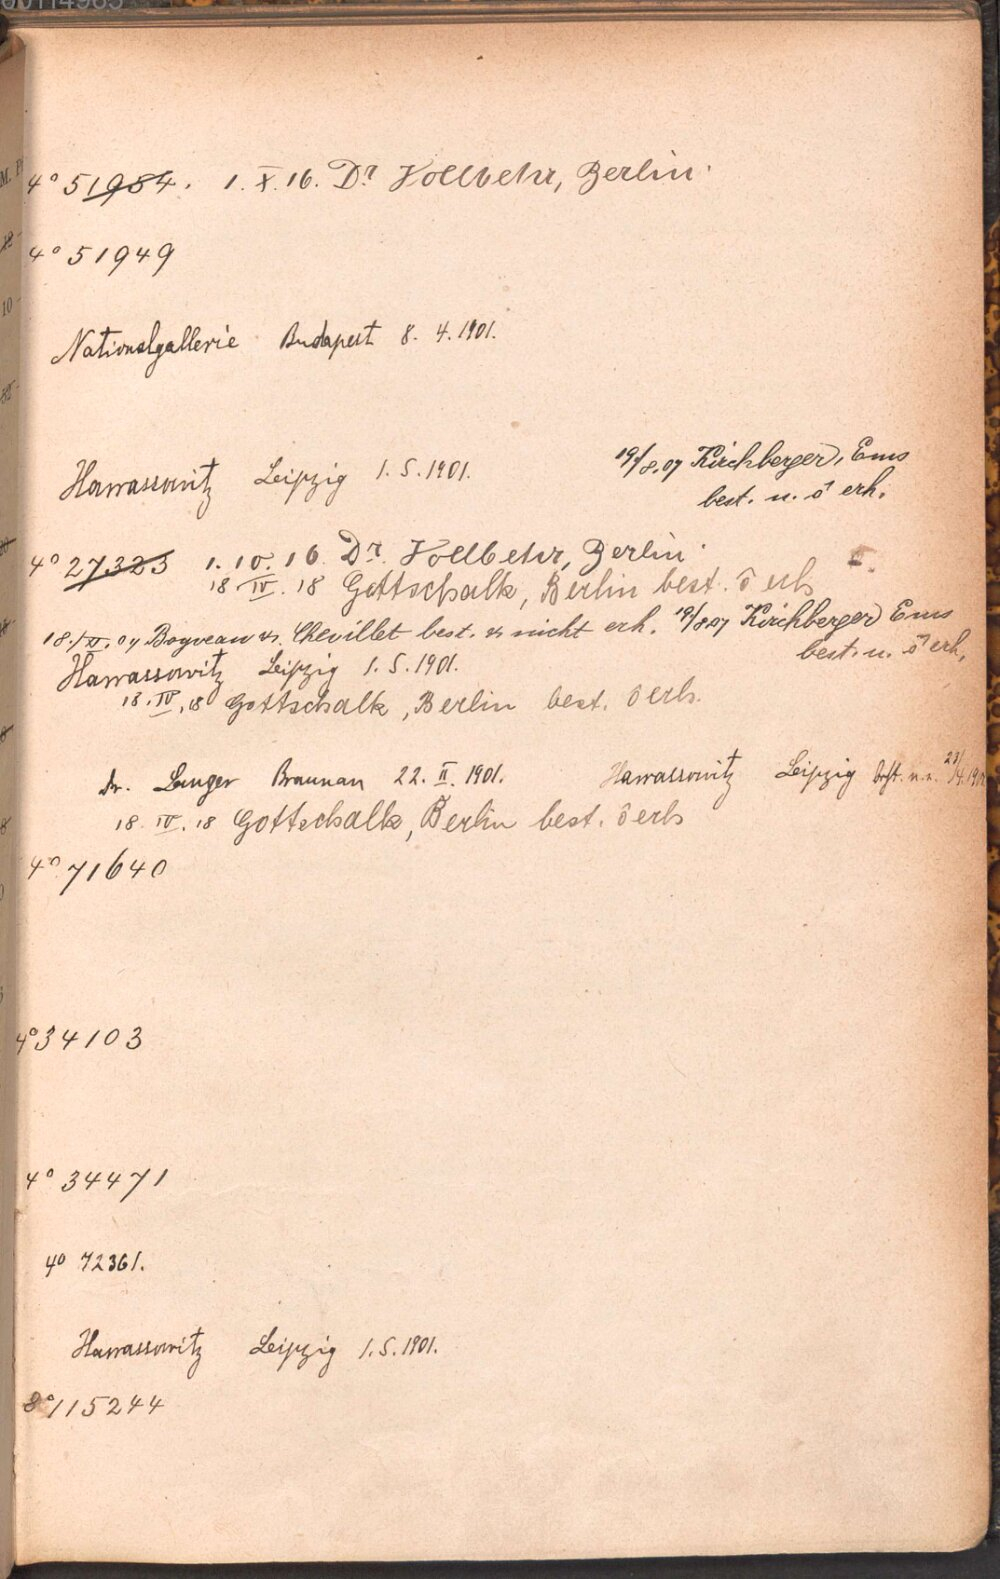 4° 51984. 1. X. 16. Dr Vollbehr, Berlin.
4° 51949
Nationalgallerie Budapest 8. 4. 1901.
Harrassowitz Leipzig 1. 5. 1901.
19/8.07 Kirchberger, Ems
best. u. ō erh.
4° 27323 1. 10. 16 Dr. Vollbehr, Berlin.
18. IV. 18 Gottschalk, Berlin best. ō erh
18./XI. 04 Boyveau & Chevillet best. & nicht erh. 19/8.07 Kirchberger Ems
best. u. ō erh.
Harrassowitz Leipzig 1. 5. 1901.
18. IV. 18 Gottschalk, Berlin best. ō erh.
Dr. Langer Braunau 22. II. 1901. Harrassowitz Leipzig
18. IV. 18 Gottschalk, Berlin best. ō erh
4° 71640
4° 34103
4° 34471
4° 72361.
Harrassowitz Leipzig 1. 5. 1901.
8° 115244